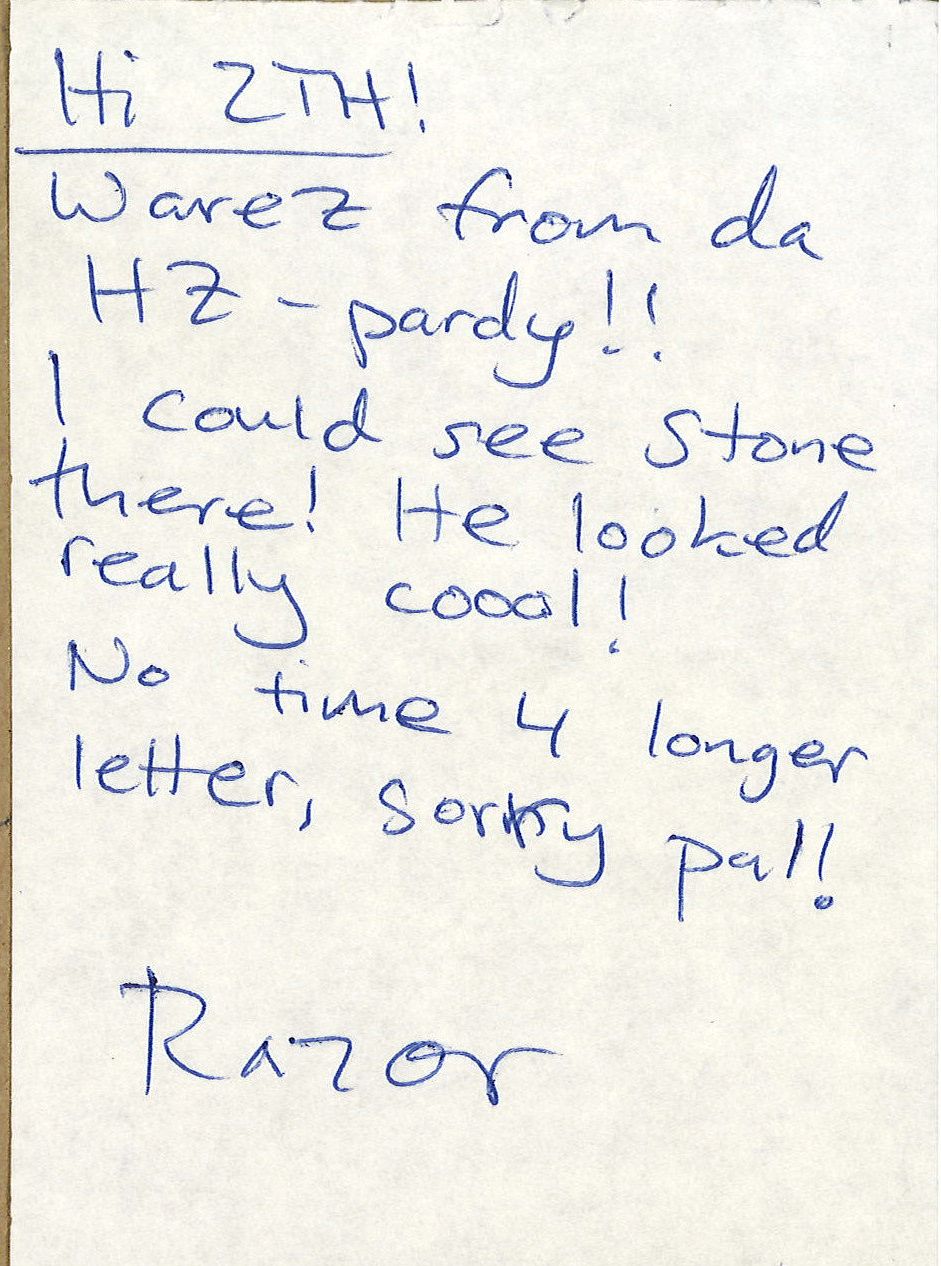 Hi ZTH!
Warez from da
HZ - pardy!!
I could see Stone
there! He looked
really coool!
No time 4 longer
letter, sorry pal!
Razor